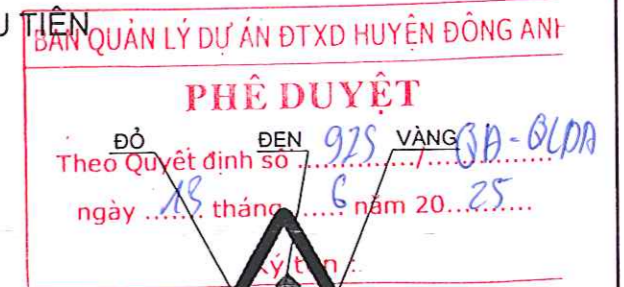 U TIÊN
BAN QUẢN LÝ DỰ ÁN ĐTXD HUYỆN ĐÔNG ANH
PHÊ DUYỆT
ĐỎ ĐEN VÀNG
Theo Quyết định số 925 / QĐ-QLDA
ngày 13 tháng 6 năm 2025
Ký tên :